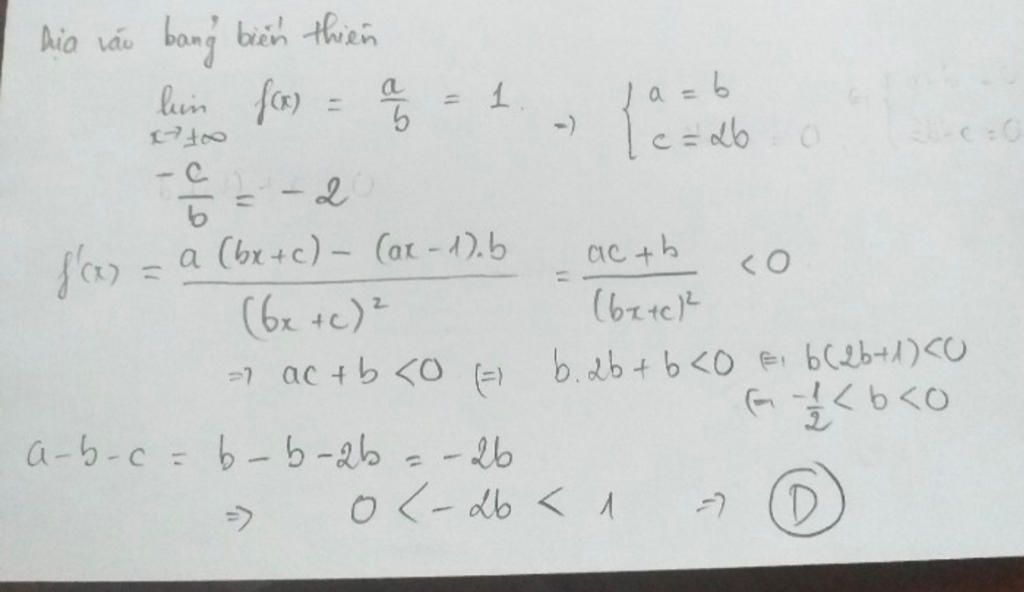 Dựa vào bảng biến thiên
lim f(x) = a/b = 1. => { a = b
x→±∞ c = 2b
-c/b = -2
f'(x) = a(bx+c) - (ax-1).b / (bx+c)² = ac+b / (bx+c)² < 0
=> ac+b < 0 (=) b.2b + b < 0 (=) b(2b+1) < 0
(=) -1/2 < b < 0
a-b-c = b-b-2b = -2b
=> 0 < -2b < 1 => D